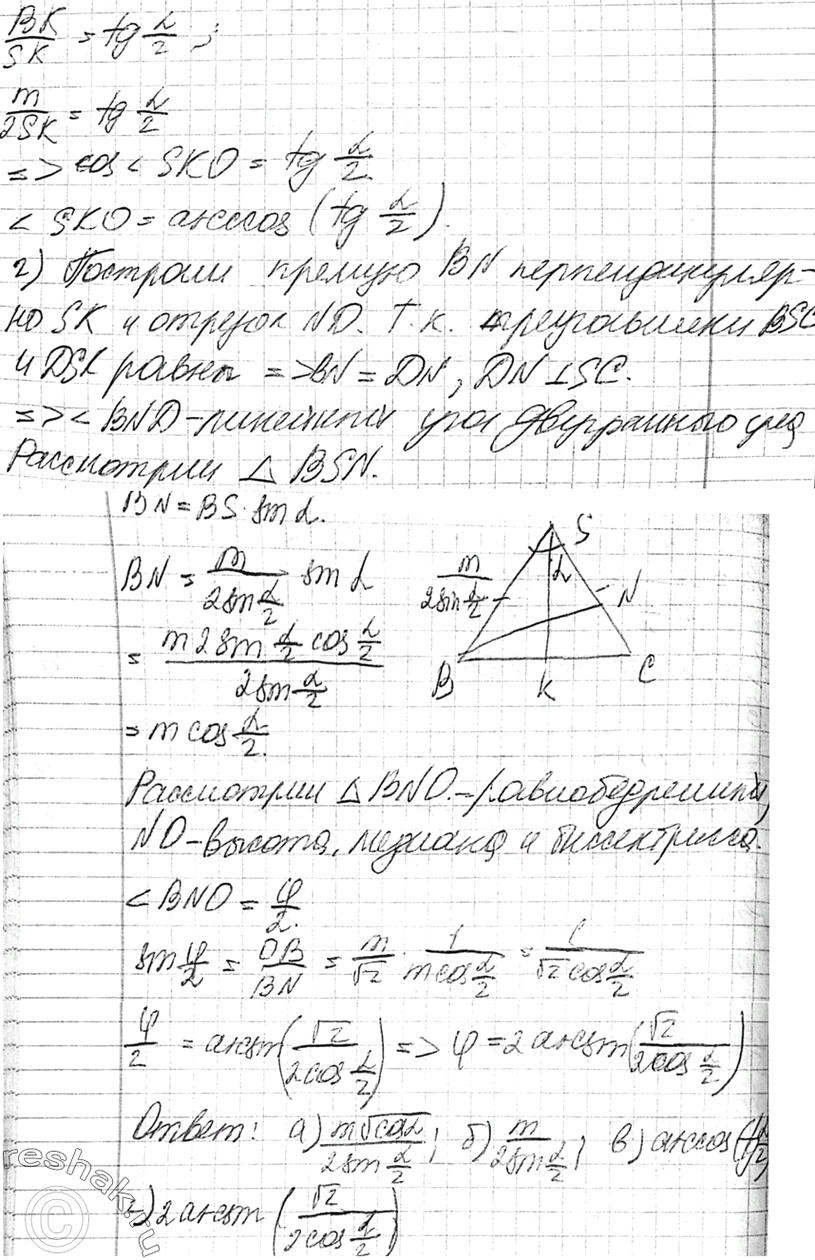 BK/SK = tg α/2 ;
m/2SK = tg α/2
=> cos < SKO = tg α/2.
< SKO = arccos (tg α/2).
г) Построим прямую BN перпендикуляр-
но SK и отрезок ND. Т.к. треугольники BSC
и DSK равны => BN = DN, DN ⊥ SC.
=> < BND - линейный угол двугранного угла
Рассмотрим △ BSN.
BN = BS · sin α.
BN = m/(2 sin α/2) · sin α
= (m 2 sin α/2 cos α/2)/(2 sin α/2)
= m cos α/2.
S
α
m/(2 sin α/2)
N
B
K
C
Рассмотрим △ BND. - равнобедренный,
NO - высота, медиана и биссектрисса.
< BNO = φ/2.
sin φ/2 = OB/BN = m/√2 · 1/(m cos α/2) = 1/(√2 cos α/2)
φ/2 = arcsin (√2/(2 cos α/2)) => φ = 2 arcsin (√2/(2 cos α/2))
Ответ: а) m√cos α/(2 sin α/2); б) m/(2 sin α/2); в) arccos (tg α/2)
г) 2 arcsin (√2/(2 cos α/2))
reshak.ru
©